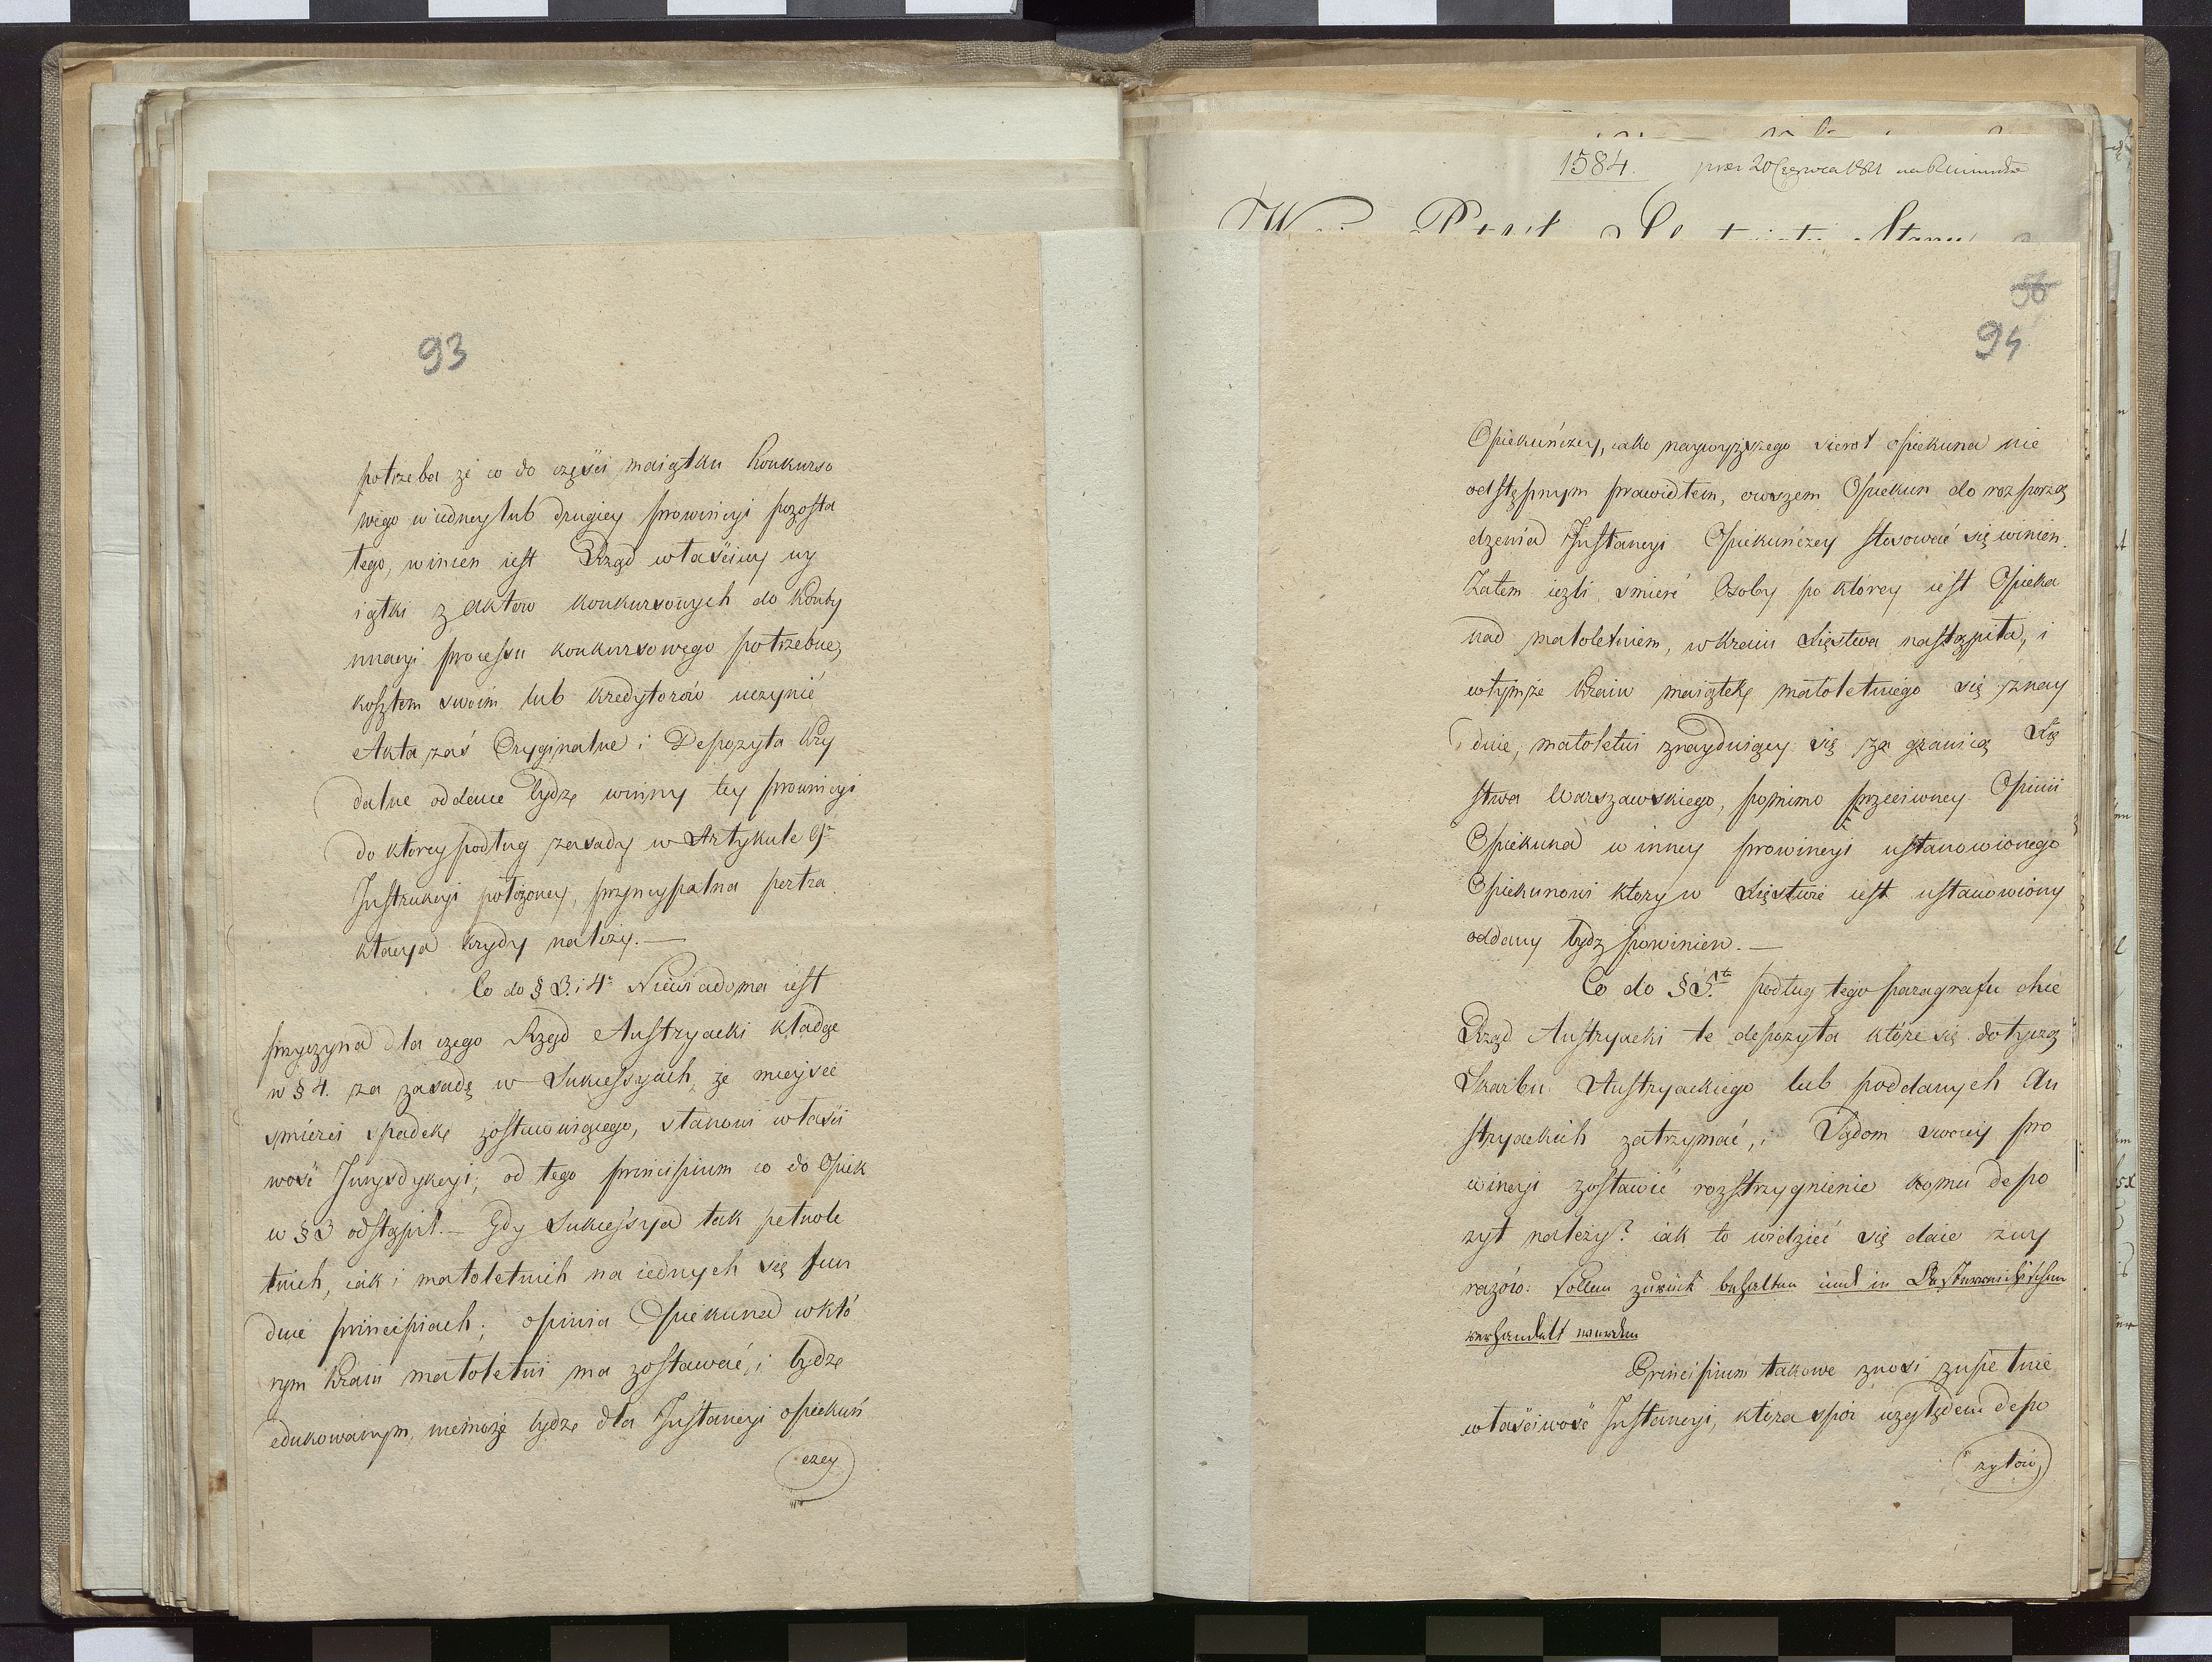 93
potrzeba że co do części maiątku konkurso
wego w iedney lub drugiey prowincyi pozosta
łego, winien iest Rząd właściwy wy
iątki z aktow konkursowych do konty
nuacyi processu konkursowego potrzebne,
kosztem swoim lub kredytorów uczynić
Akta zaś Oryginalne i Depozyta kry
dalne oddane bydź winny tey prowincyi
do ktorey podług zasady w Artykule 9.
Instrukcyi położoney, pryncypalna pertra
ktacya krydy należy.—
Co do § 3. i 4. Niewiadoma iest
przyczyna dla czego Rząd Austryacki kładąc
w § 4. za zasadę w Sukcessyach, że mieysce
śmierci spadek zostawuiącego, stanowi właści
wość Jurysdykcyi, od tego principium co do Opiek
w § 3 odstąpił.— Gdy Sukcessya tak pełnole
tnich, iak i małoletnich na iednych się fun
duie principiach; opinia Opiekuna w któ
rym kraiu małoletni ma zostawać, i bydź
edukowanym, niemoże bydź dla Instancyi opiekuń
czey
1584. 20 Czerwca
Stanu
56
94
Opiekuńczey, iako naywyższego sierot opiekuna nie
odstępnym prawidłem, owszem Opiekun do rozporzą
dzenia Instancyi Opiekuńczey stosować się winien.
Zatem ieżli śmierć Osoby po ktorey iest Opieka
nad małoletniem, w kraiu Xięstwa nastąpiła, i
w tymże kraiu maiątek małoletniego się znay
duie, małoletni znayduiący się za granicą Xię
stwa Warszawskiego, pomimo przeciwney Opinii
Opiekuna w inney prowincyi ustanowionego
Opiekunowi ktory w Xięstwie iest ustanowiony
oddany bydź powinien.—
Co do § 5. podług tego paragrafu chce
Rząd Austryacki te depozyta które się dotyczą
Skarbu Austryackiego lub poddanych Au
stryackich zatrzymać, i Sądom swoiey pro
wincyi zostawić rozstrzygnienie komu depo
zyt należy? iak to widzieć się daie z wy
razów: sollen zurück behalten und in Oesterreichischen
verhandelt werden
Principium takowe znosi zupełnie
właściwość Instancyi, która spór względem depo
zytów,